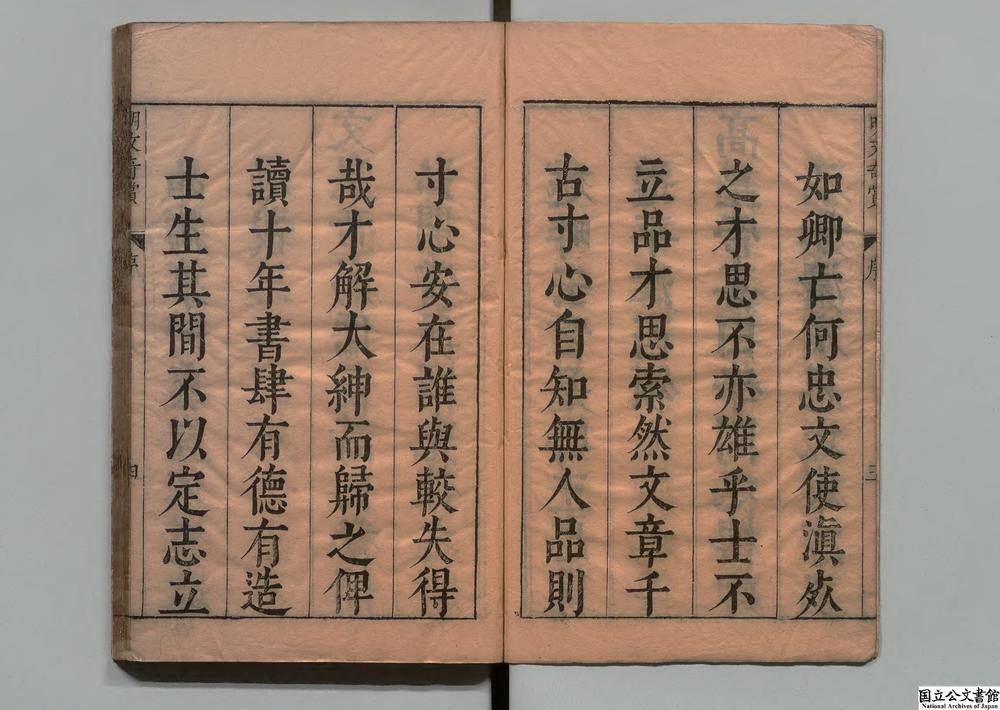 如卿亡何忠文使滇欻
之才思不亦雄乎士不
立品才思索然文章千
古寸心自知無人品則
寸心安在誰與較失得
哉才解大紳而歸之俾
讀十年書肆有德有造
士生其間不以定志立
明文奇賞
序
四
国立公文書館
National Archives of Japan